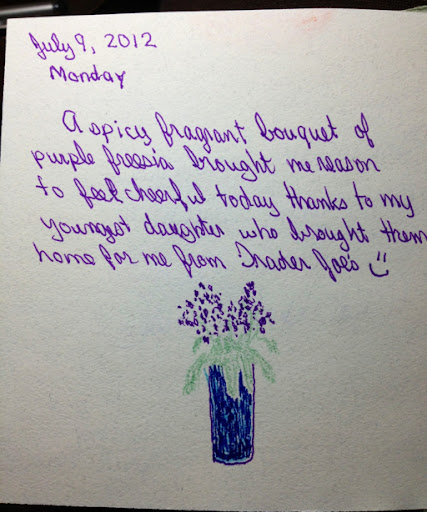 July 9, 2012
Monday
A spicy fragrant bouquet of
purple freesia brought me reason
to feel cheerful today thanks to my
youngest daughter who brought them
home for me from Trader Joe's